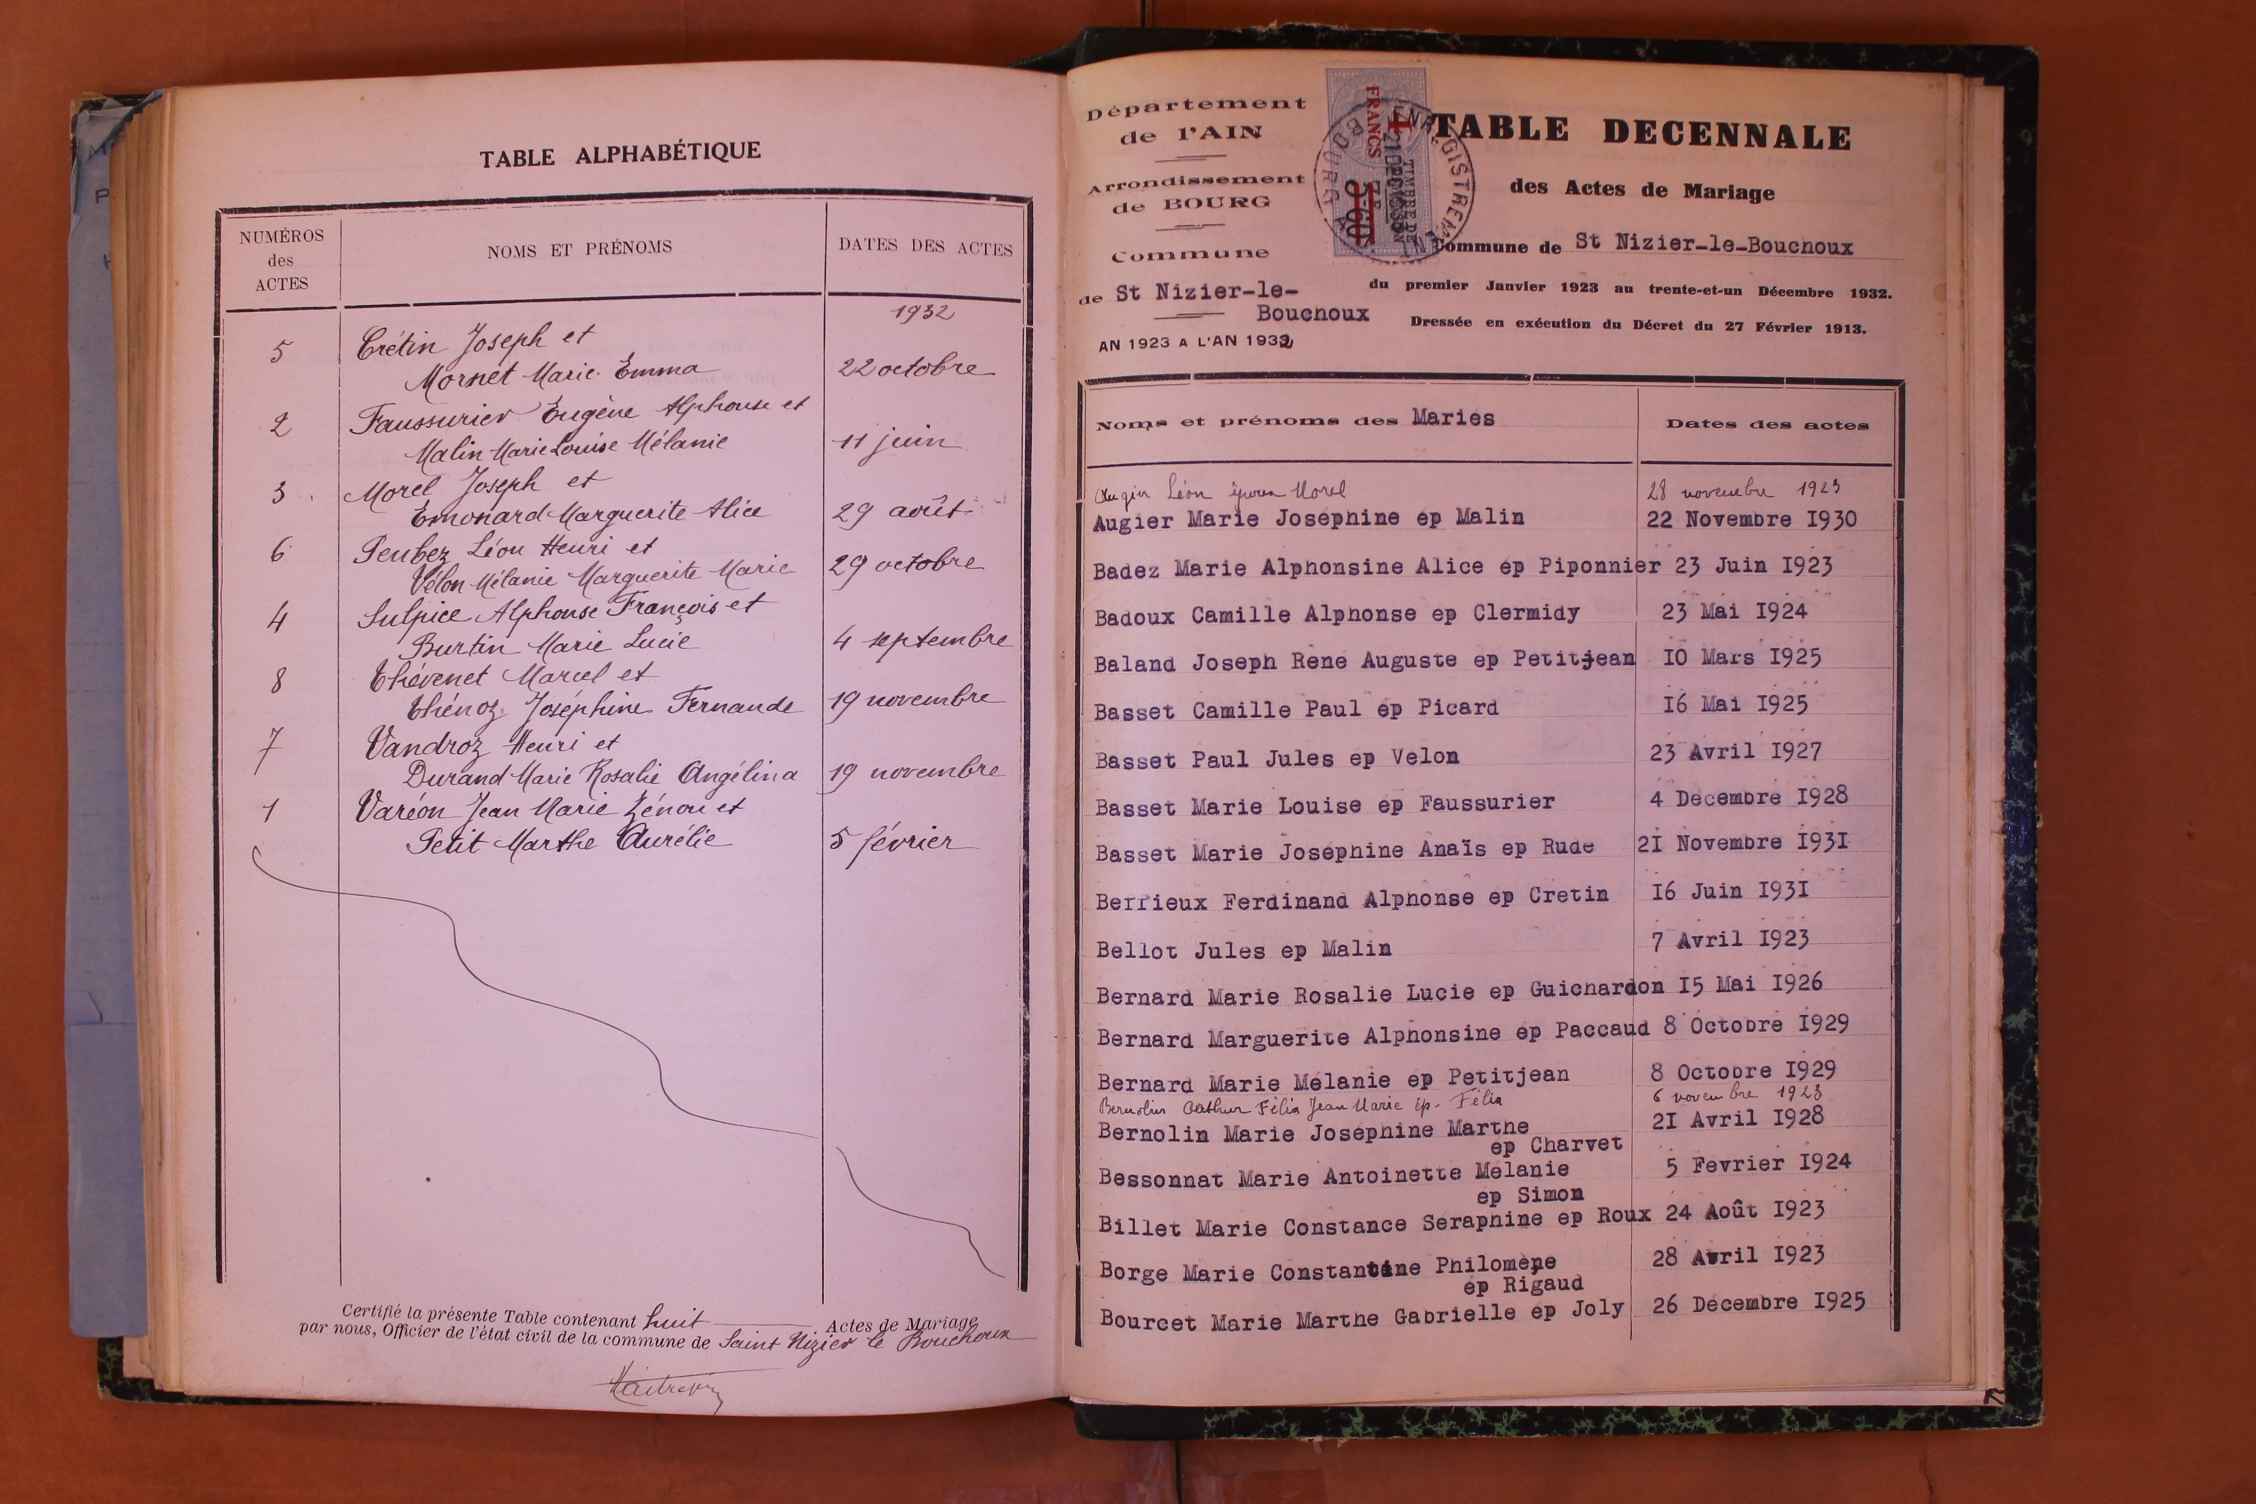 TABLE ALPHABÉTIQUE
NUMÉROS
des
ACTES
NOMS ET PRÉNOMS
DATES DES ACTES
1932
5 Crétin Joseph et
Mornet Marie Emma 22 octobre
2 Faussurier Eugène Alphonse et
Malin Marie Louise Mélanie 11 juin
3 Morel Joseph et
Emonard Marguerite Alice 29 août
6 Peubez Léon Henri et
Vélon Mélanie Marguerite Marie 29 octobre
4 Sulpice Alphonse François et
Burtin Marie Lucie 4 septembre
8 Thévenet Marcel et
Thénoz Joséphine Fernande 19 novembre
7 Vandroz Henri et
Durand Marie Rosalie Angélina 19 novembre
1 Varéon Jean Marie Zénon et
Petit Marthe Aurélie 5 février
Certifié la présente Table contenant huit Actes de Mariage
par nous, Officier de l'état civil de la commune de Saint Nizier le Bouchoux
Département
de l'AIN
Arrondissement
de BOURG
Commune
de St Nizier-le-
Bouchoux
AN 1923 A L'AN 1932
4
FRANCS
TIMBRE DE
DIMENSION
ENREGISTREMENT
BOURG
TABLE DECENNALE
des Actes de Mariage
Commune de St Nizier-le-Bouchoux
du premier Janvier 1923 au trente-et-un Décembre 1932.
Dressée en exécution du Décret du 27 Février 1913.
Noms et prénoms des Maries
Dates des actes
Léon époux Morel 28 novembre 1923
Augier Marie Josephine ep Malin 22 Novembre I930
Badez Marie Alphonsine Alice ep Piponnier 23 Juin I923
Badoux Camille Alphonse ep Clermidy 23 Mai I924
Baland Joseph Rene Auguste ep Petitjean IO Mars I925
Basset Camille Paul ep Picard I6 Mai I925
Basset Paul Jules ep Velon 23 Avril I927
Basset Marie Louise ep Faussurier 4 Decembre I928
Basset Marie Josephine Anaïs ep Rude 2I Novembre I93I
Berrieux Ferdinand Alphonse ep Cretin I6 Juin I93I
Bellot Jules ep Malin 7 Avril I923
Bernard Marie Rosalie Lucie ep Guichardon I5 Mai I926
Bernard Marguerite Alphonsine ep Paccaud 8 Octobre I929
Bernard Marie Melanie ep Petitjean 8 Octobre I929
Bernolin Arthur Félix Jean Marie ép. Félix 6 novembre 1923
Bernolin Marie Josephine Marthe 2I Avril I928
ep Charvet
Bessonnat Marie Antoinette Melanie 5 Fevrier I924
ep Simon
Billet Marie Constance Seraphine ep Roux 24 Août I923
Borge Marie Constantine Philomène 28 Avril I923
ep Rigaud
Bourcet Marie Marthe Gabrielle ep Joly 26 Decembre I925